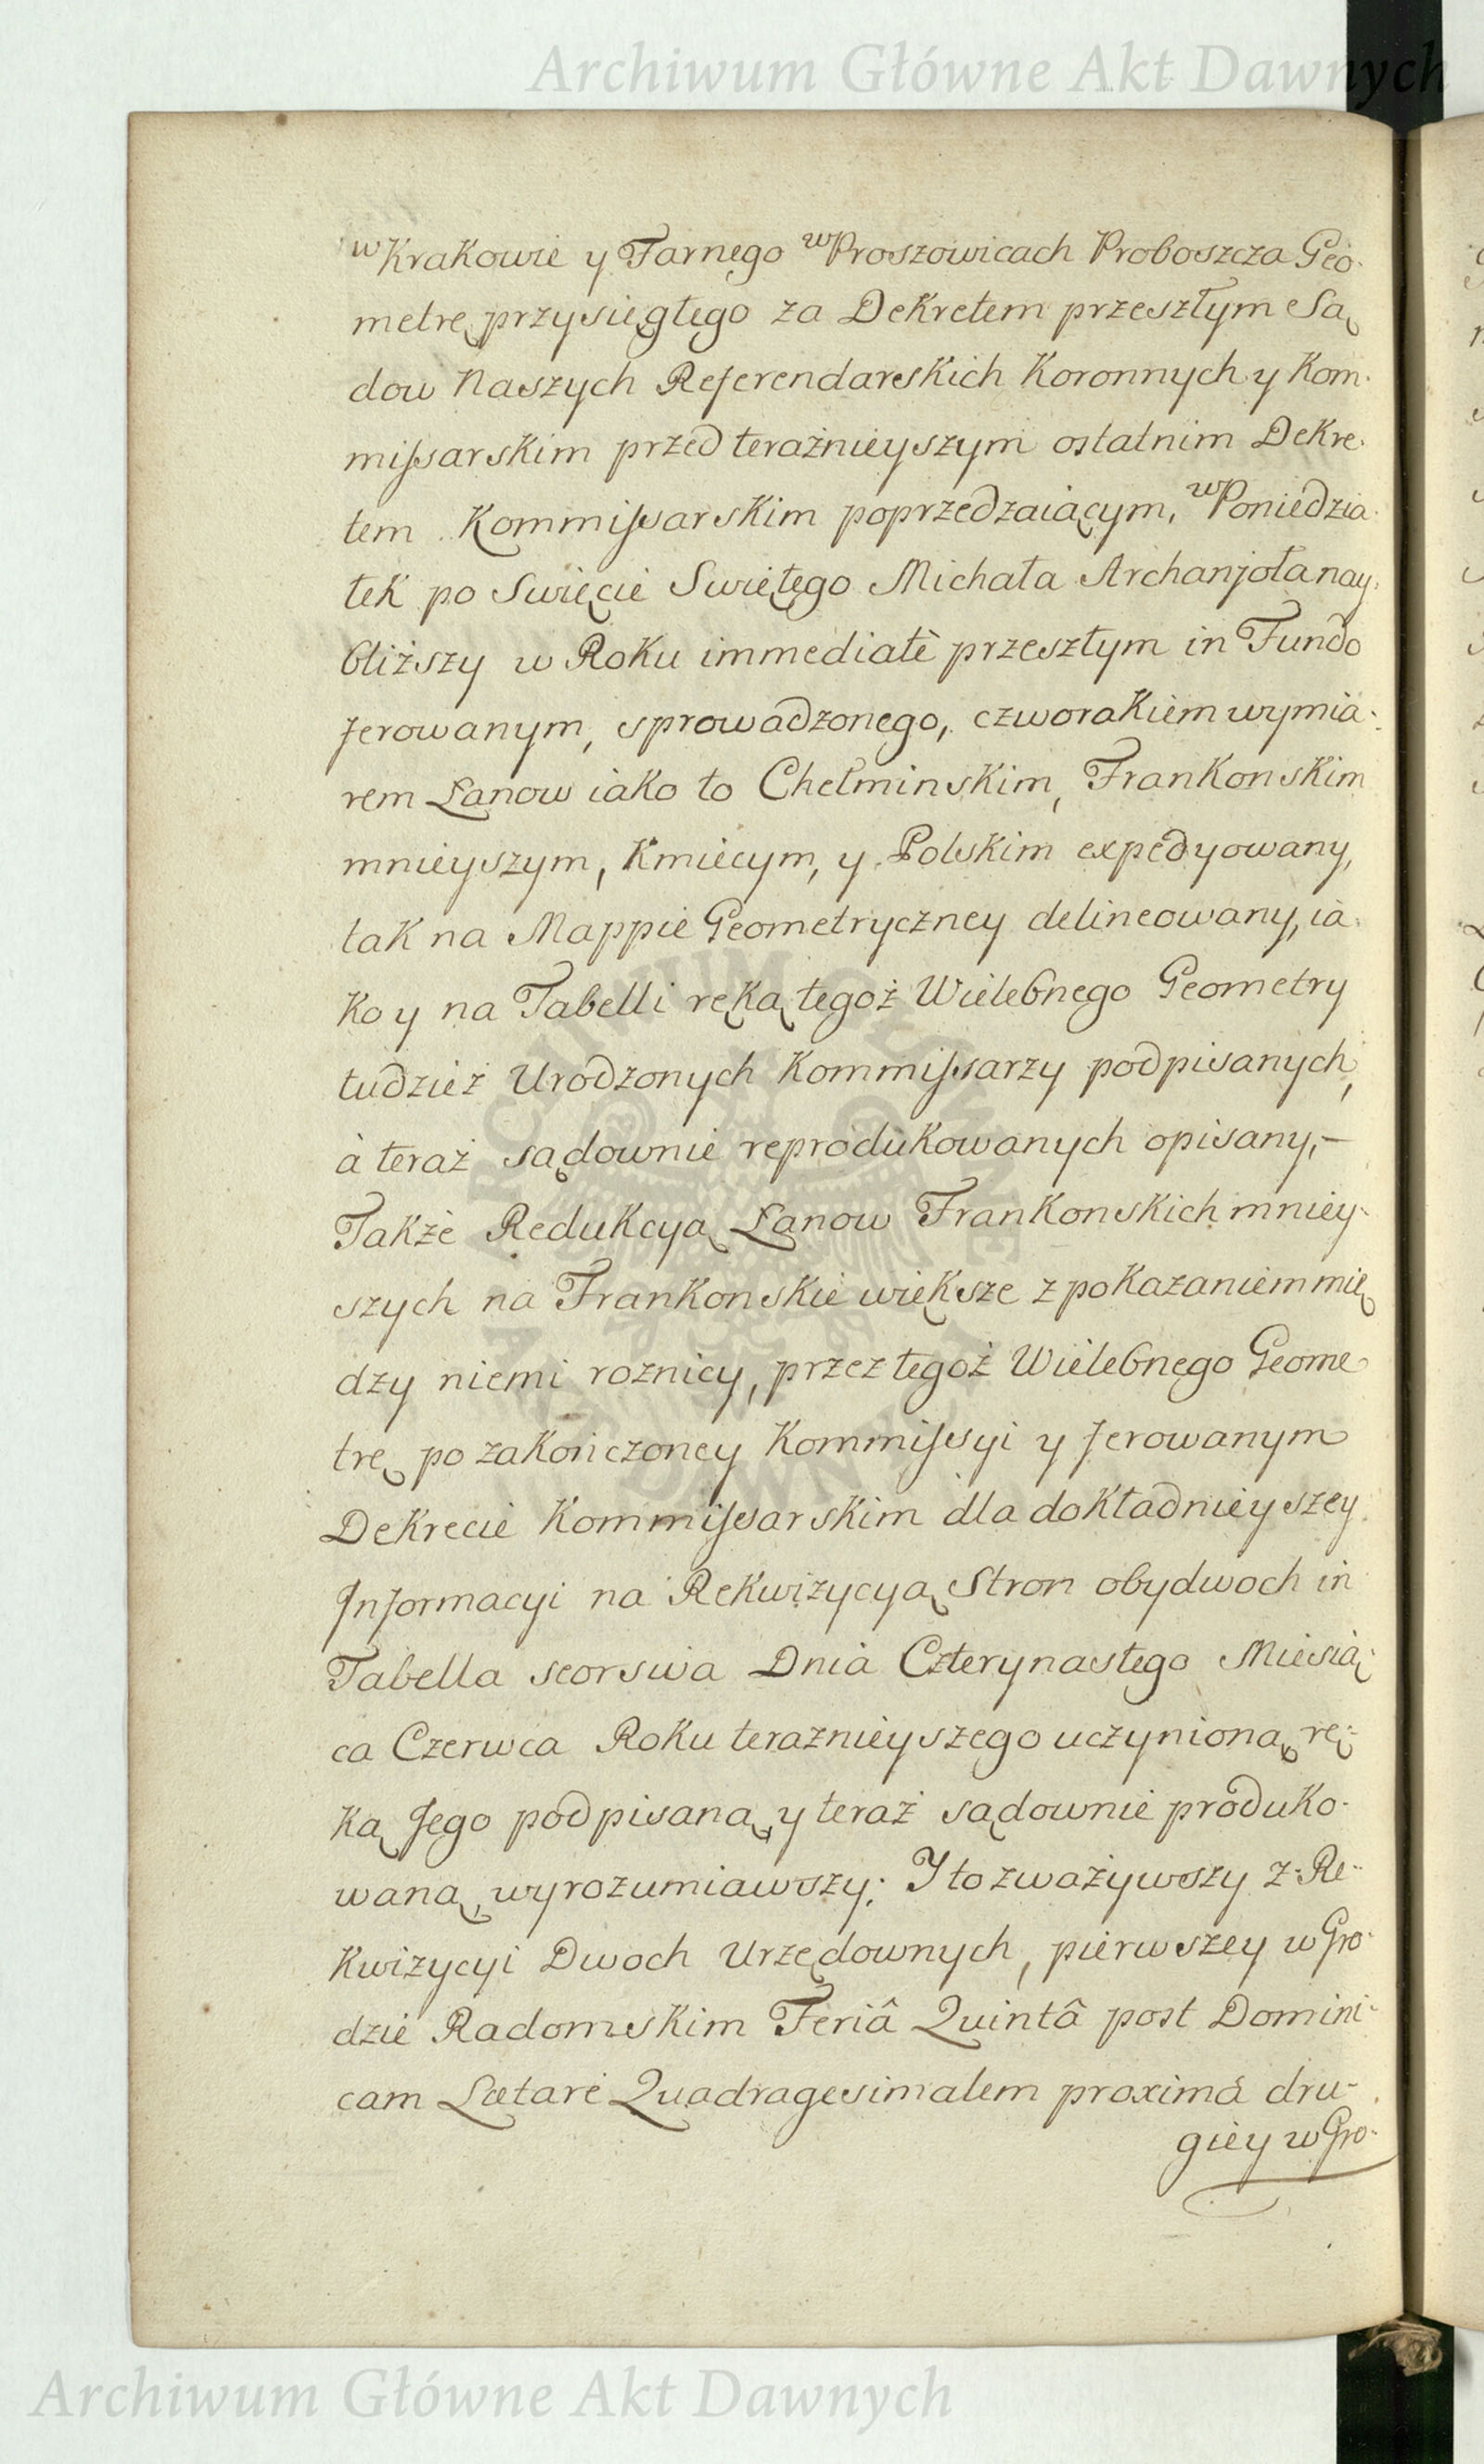 Archiwum Główne Akt Dawnych
w Krakowie y Farnego w Proszowicach Proboszcza Geo-
metrę przysięgłego za Dekretem przeszłym Są
dow Naszych Referendarskich Koronnych y Kom-
missarskim przed teraźnieyszym ostatnim Dekre-
tem Kommissarskim poprzedzaiącym, w Poniedzia-
tek po Swięcie Swiętego Michała Archanjoła nay-
bliższy w Roku immediatè przeszłym in Fundo
ferowanym, sprowadzonego, czworakiem wymia-
rem Łanow iako to Chełminskim, Frankonskim
mnieyszym, Kmiecym, y Polskim expedyowany,
tak na Mappie Geometryczney delineowany, ia-
ko y na Tabelli ręką tegoż Wielebnego Geometry
tudzież Urodzonych Kommissarzy podpisanych,
à teraż sądownie reprodukowanych opisany,-
Także Redukcyą Łanow Frankonskich mniey-
szych na Frankonskie większe z pokazaniem mię
dzy niemi roznicy, przez tegoż Wielebnego Geome
trę po zakończoney Kommissyi y ferowanym
Dekrecie Kommissarskim dla dokładnieyszey
Informacyi na Rekwizycyą Stron obydwoch in
Tabella seorsiva Dnia Czterynastego Miesią-
ca Czerwca Roku teraznieyszego uczynioną rę-
ką Jego podpisaną, y teraż sądownie produko-
waną, wyrozumiawszy; Y to zważywszy z Re-
kwizycyi Dwoch Urzędownych, pierwszey w Gro-
dzie Radomskim Feriâ Quintâ post Domini-
cam Lætare Quadragesimalem proximá dru-
giey w Gro-
Archiwum Główne Akt Dawnych